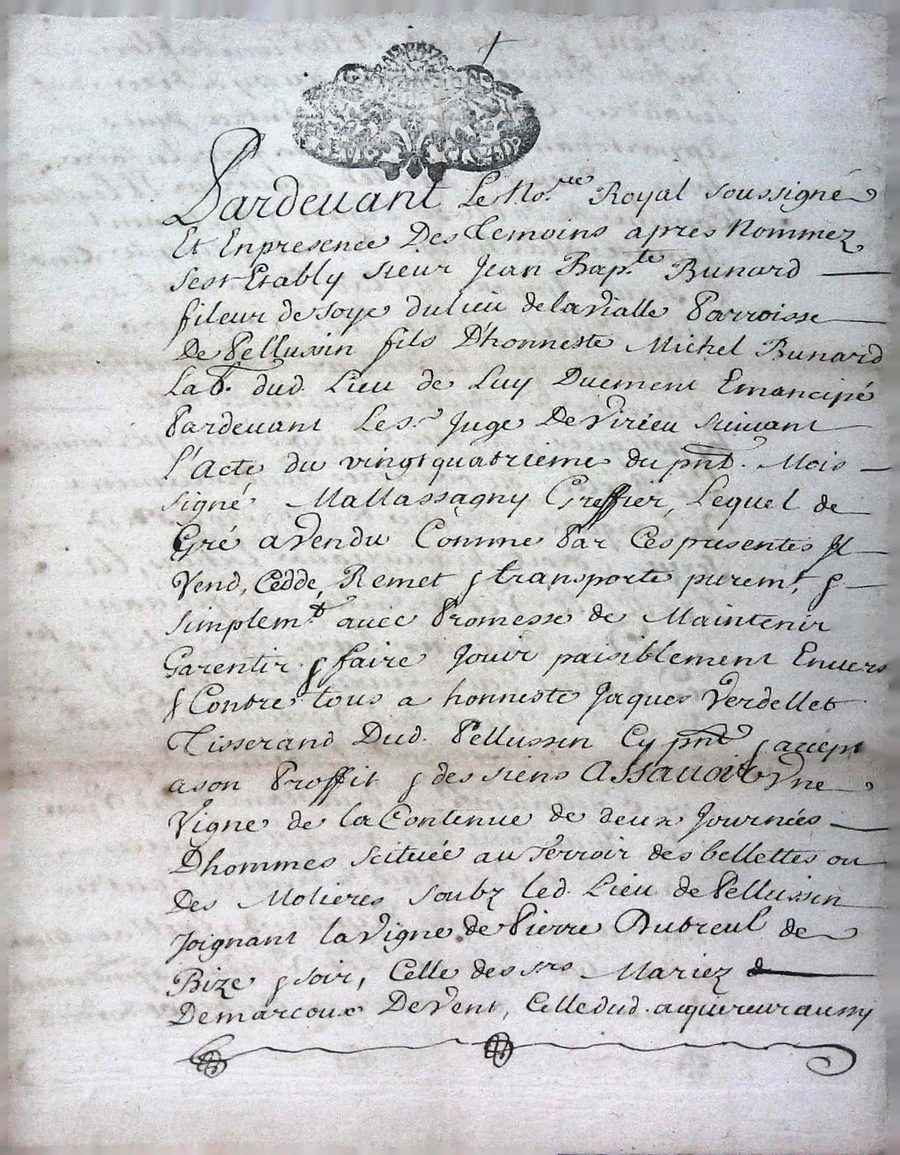 Pardevant Le No.re Royal soussigné
Et Enpresence Des Temoins aprés Nommez
Sest Etably sieur Jean Bap.te Bunard
fileur de soye du lieu de la Vialle Parroisse
De Pellussin fils D'honneste Michel Bunard
Lab.r dud. Lieu de Luy Duement Emancipé
Pardevant Le s.r Juge De Virieu suivant
l'Acte du vingt quatrieme du pnt. Mois
signé Mallassagny Greffier, Lequel de
Gré a Vendu Comme Par Ces presentes Il
Vend, Cedde, Remet & transporte purem.t &
simplem.t avec Promesse de Maintenir
Garentir & faire Jouir paisiblement Envers
& Contre tous a honneste Jaques Verdellet
Tisserand Dud. Pellussin Cy pnt & accept
a son Proffit & des siens Assavoir Vne
Vigne de la Contenue de deux Journées
D'hommes scituée au Terroir des bellettes ou
Des Molieres soubz led. Lieu de Pellussin
Joignant la Vigne de Pierre Dubreul de
Bize & soir, Celle des srs Mariez
Demarcoux De Vent, Celle dud. aquereur aussy